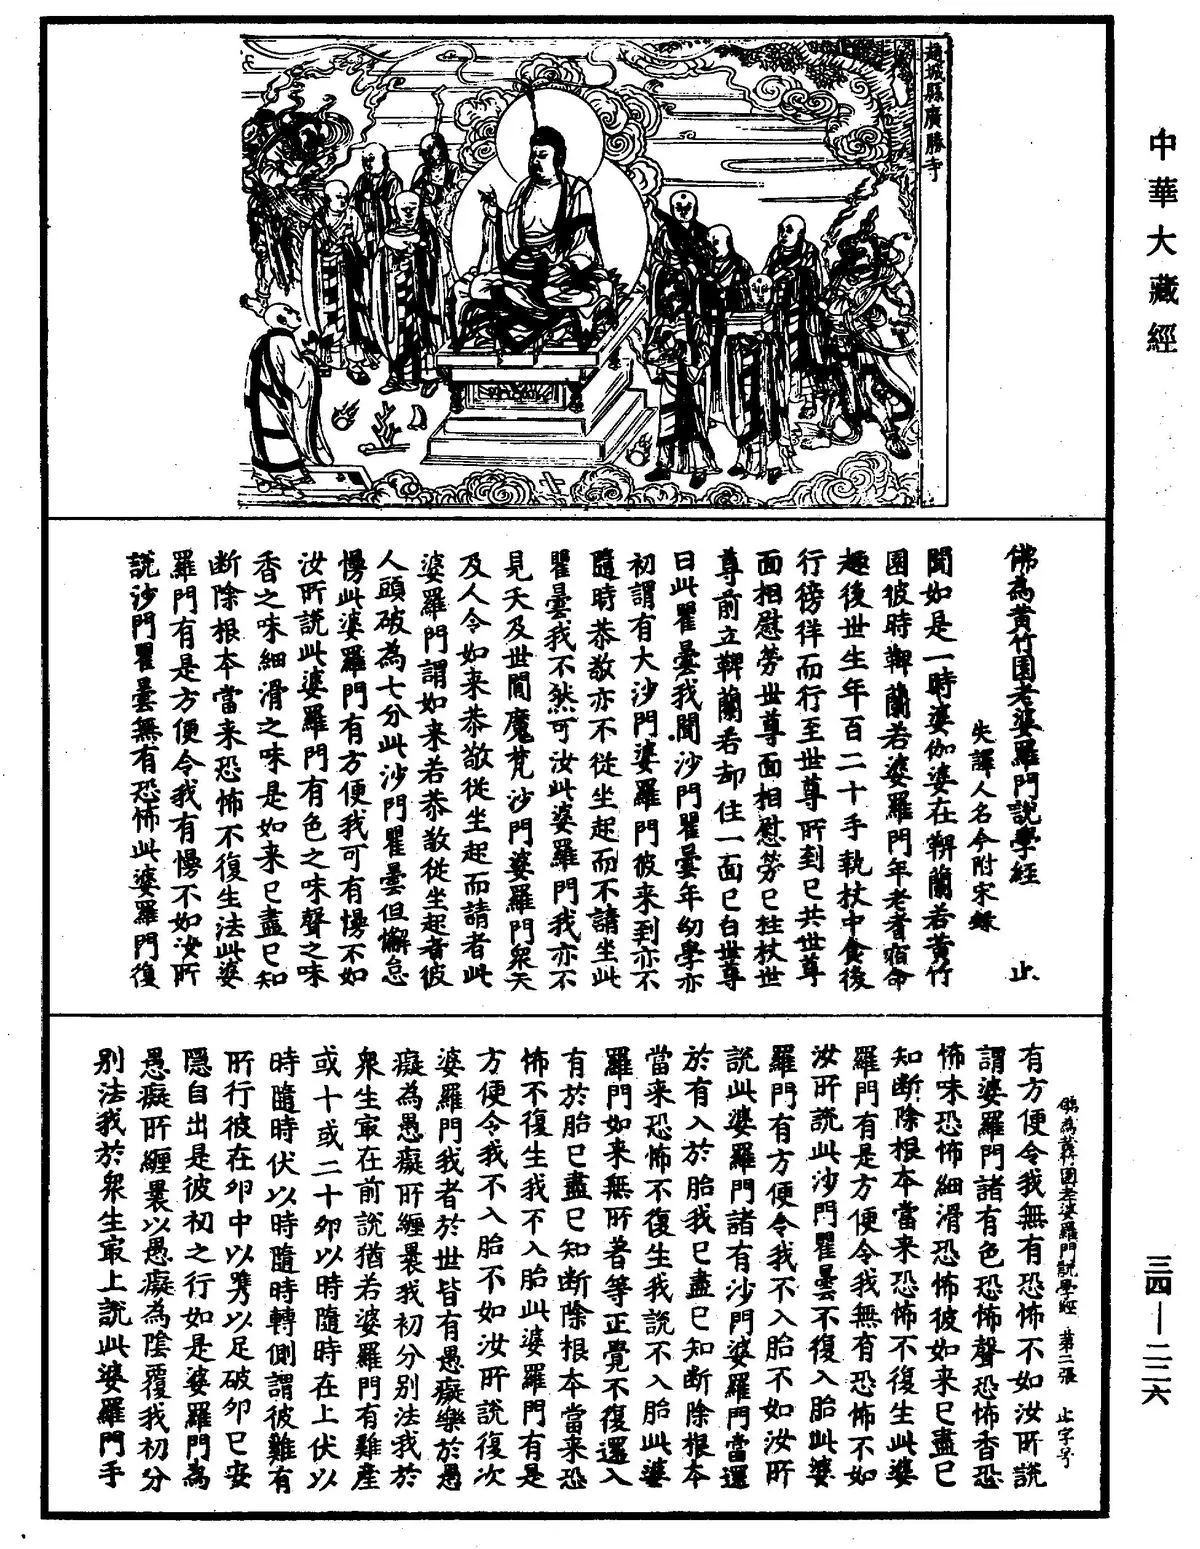 中華大藏經
趙城縣廣勝寺
佛為黃竹園老婆羅門說學經 止
失譯人名今附宋錄
聞如是一時婆伽婆在鞞蘭若黃竹
園彼時鞞蘭若婆羅門年老耆宿命
趣後世生年百二十手執杖中食後
行徬徉而行至世尊所到已共世尊
面相慰勞世尊面相慰勞已拄杖世
尊前立鞞蘭若却住一面已白世尊
曰此瞿曇我聞沙門瞿曇年幼學亦
初謂有大沙門婆羅門彼來到亦不
隨時恭敬亦不從坐起而不請坐此
瞿曇我不然可汝此婆羅門我亦不
見天及世間魔梵沙門婆羅門眾天
及人令如来恭敬從坐起而請者此
婆羅門謂如来若恭敬從坐起者彼
人頭破為七分此沙門瞿曇但懈怠
慢此婆羅門有方便我可有慢不如
汝所說此婆羅門有色之味聲之味
香之味細滑之味是如来已盡已知
断除根本當来恐怖不復生法此婆
羅門有是方便令我有慢不如汝所
說沙門瞿曇無有恐怖此婆羅門復
佛為黃竹園老婆羅門說學經 第二張 止字号
有方便令我無有恐怖不如汝所說
謂婆羅門諸有色恐怖聲恐怖香恐
怖味恐怖細滑恐怖彼如来已盡已
知断除根本當来恐怖不復生此婆
羅門有是方便令我無有恐怖不如
汝所說此沙門瞿曇不復入胎此婆
羅門有方便令我不入胎不如汝所
說此婆羅門諸有沙門婆羅門當還
於有入於胎我已盡已知断除根本
當来恐怖不復生我說不入胎此婆
羅門如来無所著等正覺不復還入
有於胎已盡已知断除根本當来恐
怖不復生我不入胎此婆羅門有是
方便令我不入胎不如汝所說復次
婆羅門我者於世皆有愚癡樂於愚
癡為愚癡所纏褁我初分別法我於
衆生冣在前說猶若婆羅門有雞產
或十或二十卵以時隨時在上伏以
時隨時伏以時隨時轉側謂彼雞有
所行彼在卵中以觜以足破卵已安
隱自出是彼初之行如是婆羅門為
愚癡所纏褁以愚癡為陰覆我初分
別法我於衆生冣上說此婆羅門手
三四—二二六